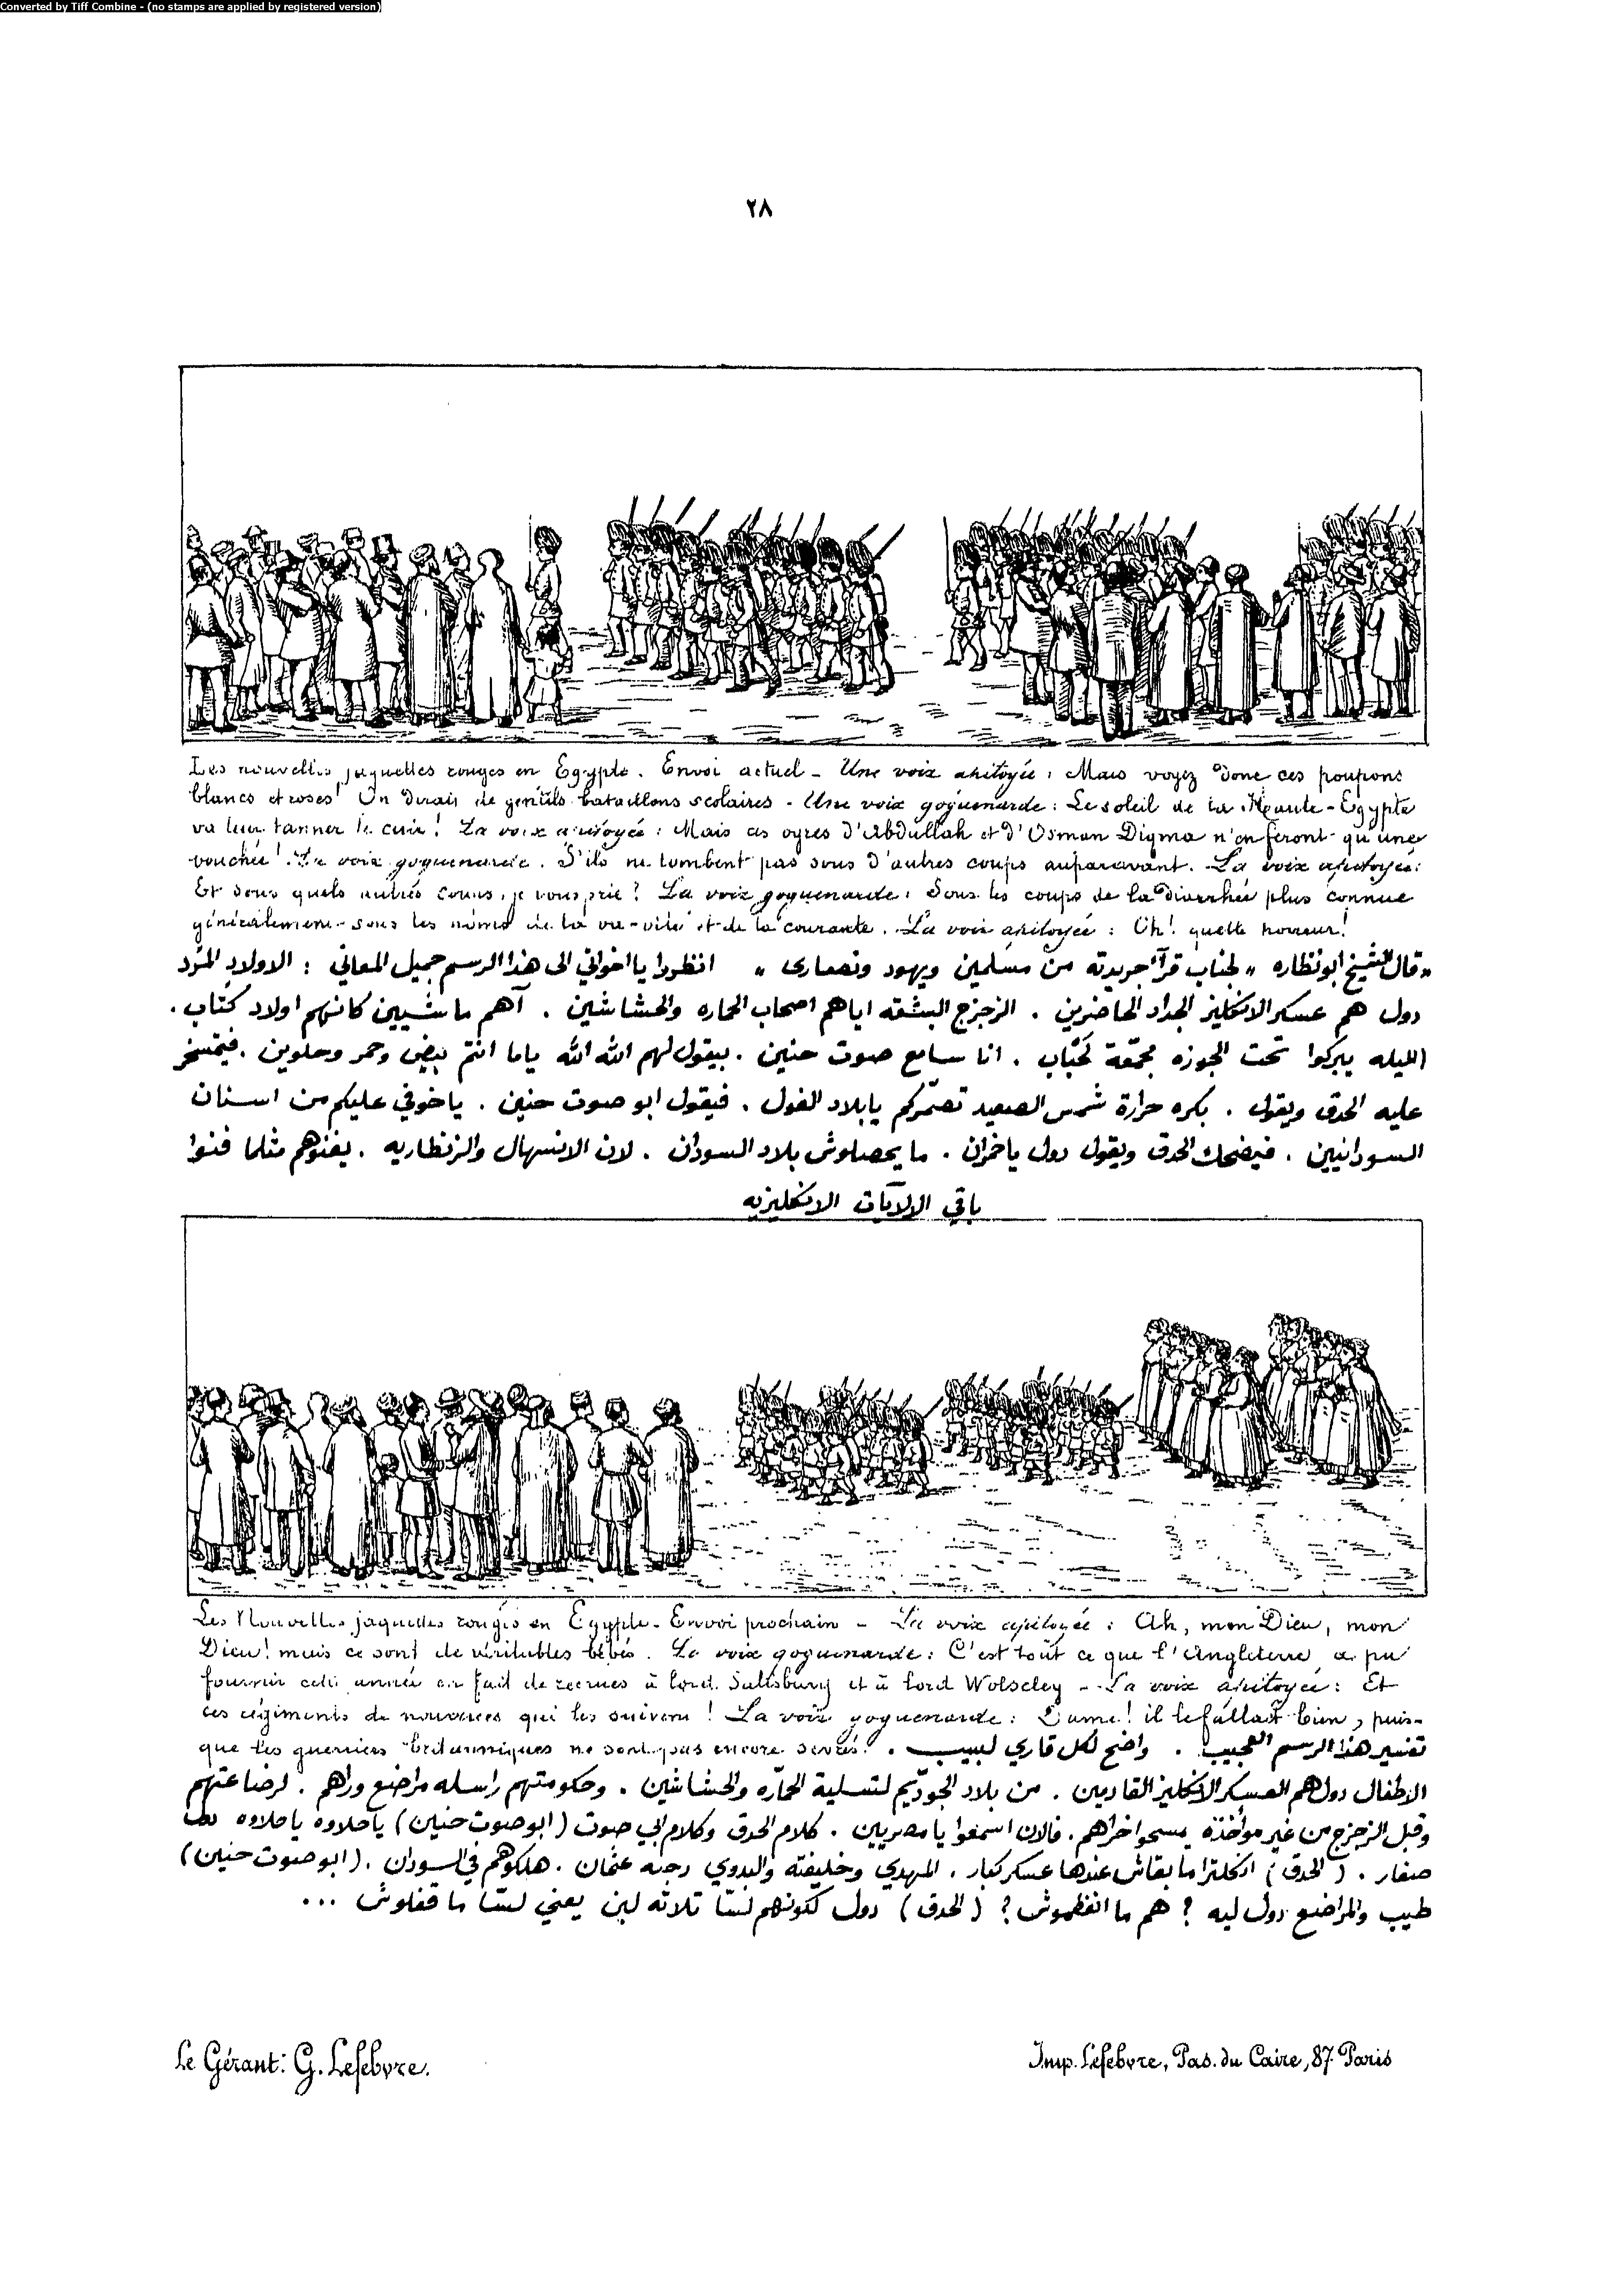 Converted by Tiff Combine - (no stamps are applied by registered version)
٢٨
Les nouvelles jaquettes rouges en Egypte. Envoi actuel - Une voix apitoyée : Mais voyez donc ces poupons
blancs et roses ! On dirait de gentils bataillons scolaires - Une voix goguenarde : Le soleil de la Haute-Egypte
va leur tanner le cuir ! La voix apitoyée : Mais ces ogres d'Abdullah et d'Osman Digma n'en feront qu'une
bouchée ! La voix goguenarde. S'ils ne tombent pas sous d'autres coups auparavant. La voix apitoyée :
Et sous quels autres coups, je vous prie ? La voix goguenarde : Sous les coups de la diarrhée plus connue
généralement sous les noms de la va-vite et de la courante. La voix apitoyée : Oh ! quelle horreur !
« قال الشيخ ابو نظاره » لجناب قرآء جريدته من مسلمين ويهود ونصارى » انظروا يا اخواتي الى هذا الرسم جميل المعاني : الاولاد المرد
دول هم عسكر الانكليز الجداد الحاضرين . الزجزج البشقه اياهم اصحاب الخماره والحشاشين . آهم ماشيين كانهم اولاد كتاب .
الليله يبركوا تحت الجوزه . انا سامع صوت حنين . بيقول لهم الله الله ياما انتم بيض وحمر وحلوين . فيتمسخر
عليه الحدق ويقول . بكره حرارة شمس الصعيد تصمّركم يا بلاد الفول . فيقول ابو صوت حنين . يا خوفي عليكم من اسنان
السودانيين . فيضحك الحدق ويقول دول ياخزان . ما يحصلوش بلاد السودان . لان الانسهال والزنطاريه . يفنوهم مثلما فنوا
باقي الالايات الانكليزيه
Les Nouvelles jaquettes rouges en Egypte. Envoi prochain - La voix apitoyée : Ah, mon Dieu, mon
Dieu ! mais ce sont de véritables bébés. La voix goguenarde : C'est tout ce que l'Angleterre a pu
fournir cette année en fait de recrues à lord Salisbury et à lord Wolseley - La voix apitoyée : Et
ces régiments de nourrices qui les suivent ! La voix goguenarde : Dame ! il le fallait bien, puis-
que les guerriers britanniques ne sont pas encore sevrés ! . تفسير هذا الرسم العجيب . واضح لكل قاري لبيب .
الاطفال دول هم العسكر الانكليز القادمين . من بلاد الجودّيم لتسلية الخمّاره والحشاشين . وحكومتهم راسله مراضع وراهم . لرضاعتهم
وقبل الزجزج من غير مؤاخذة يمسحوا خراهم . فالان اسمعوا يا مصريين . كلام الحدق وكلام ابي صوت (ابو صوت حنين) يا حلاوه يا حلاوه دول
صغار . (الحدق) انكلترا ما بقاش عندها عسكر كبار . المهدي وخليفته والبدوي دجنه عثمان . هلكوهم في السودان . (ابو صوت حنين)
طيب والمراضع دول ليه ؟ هم ما انفطموش ؟ (الحدق) دول لكونهم لسّا تلاته لبن يعني لسّا ما قفلوش ...
Le Gérant : G. Lefebvre.
Imp. Lefebvre, Pas. du Caire, 87 Paris